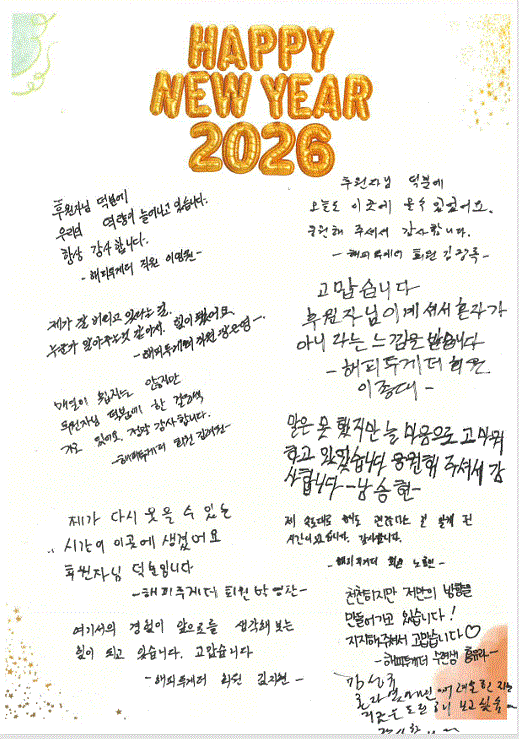 HAPPY
NEW YEAR
2026
후원자님 덕분에
우리의 역량이 늘어나고 있습니다.
항상 감사합니다.
- 해피투게더 직원 이영원 -
제가 잘 버티고 있다는 걸,
누군가 알아주는것 같아서, 힘이 됐어요.
- 해피투게더 직원
매일이 쉽지는 않지만
후원자님 덕분에 한 걸음씩
가고 있어요. 정말 감사합니다.
- 해피투게더 회원
제가 다시 웃을 수 있는
시간이 이곳에 생겼어요
후원자님 덕분입니다
- 해피투게더 회원 박영란 -
여기서의 경험이 앞으로를 생각해 보는
힘이 되고 있습니다. 고맙습니다
- 해피투게더 회원 김지현 -
후원자님 덕분에
오늘도 이곳에 올수 있었어요.
후원해 주셔서 감사합니다.
- 해피투게더 회원 김광록 -
고맙습니다
후원자님이 계셔서 혼자가
아니라는 느낌을 받습니다
- 해피투게더 회원
이종대 -
말은 못 했지만 늘 마음으로 고마워
하고 있었습니다 응원해 주셔서 감
사합니다 - 남승현 -
제 속도대로 해도 괜찮다는 걸 알게 된
시간이었습니다. 감사합니다.
- 해피투게더 회원 노현 -
천천히지만 저만의 방향을
만들어가고 있습니다!
지지해주셔서 고맙습니다♡
- 해피투게더 수련생 홍유라 -